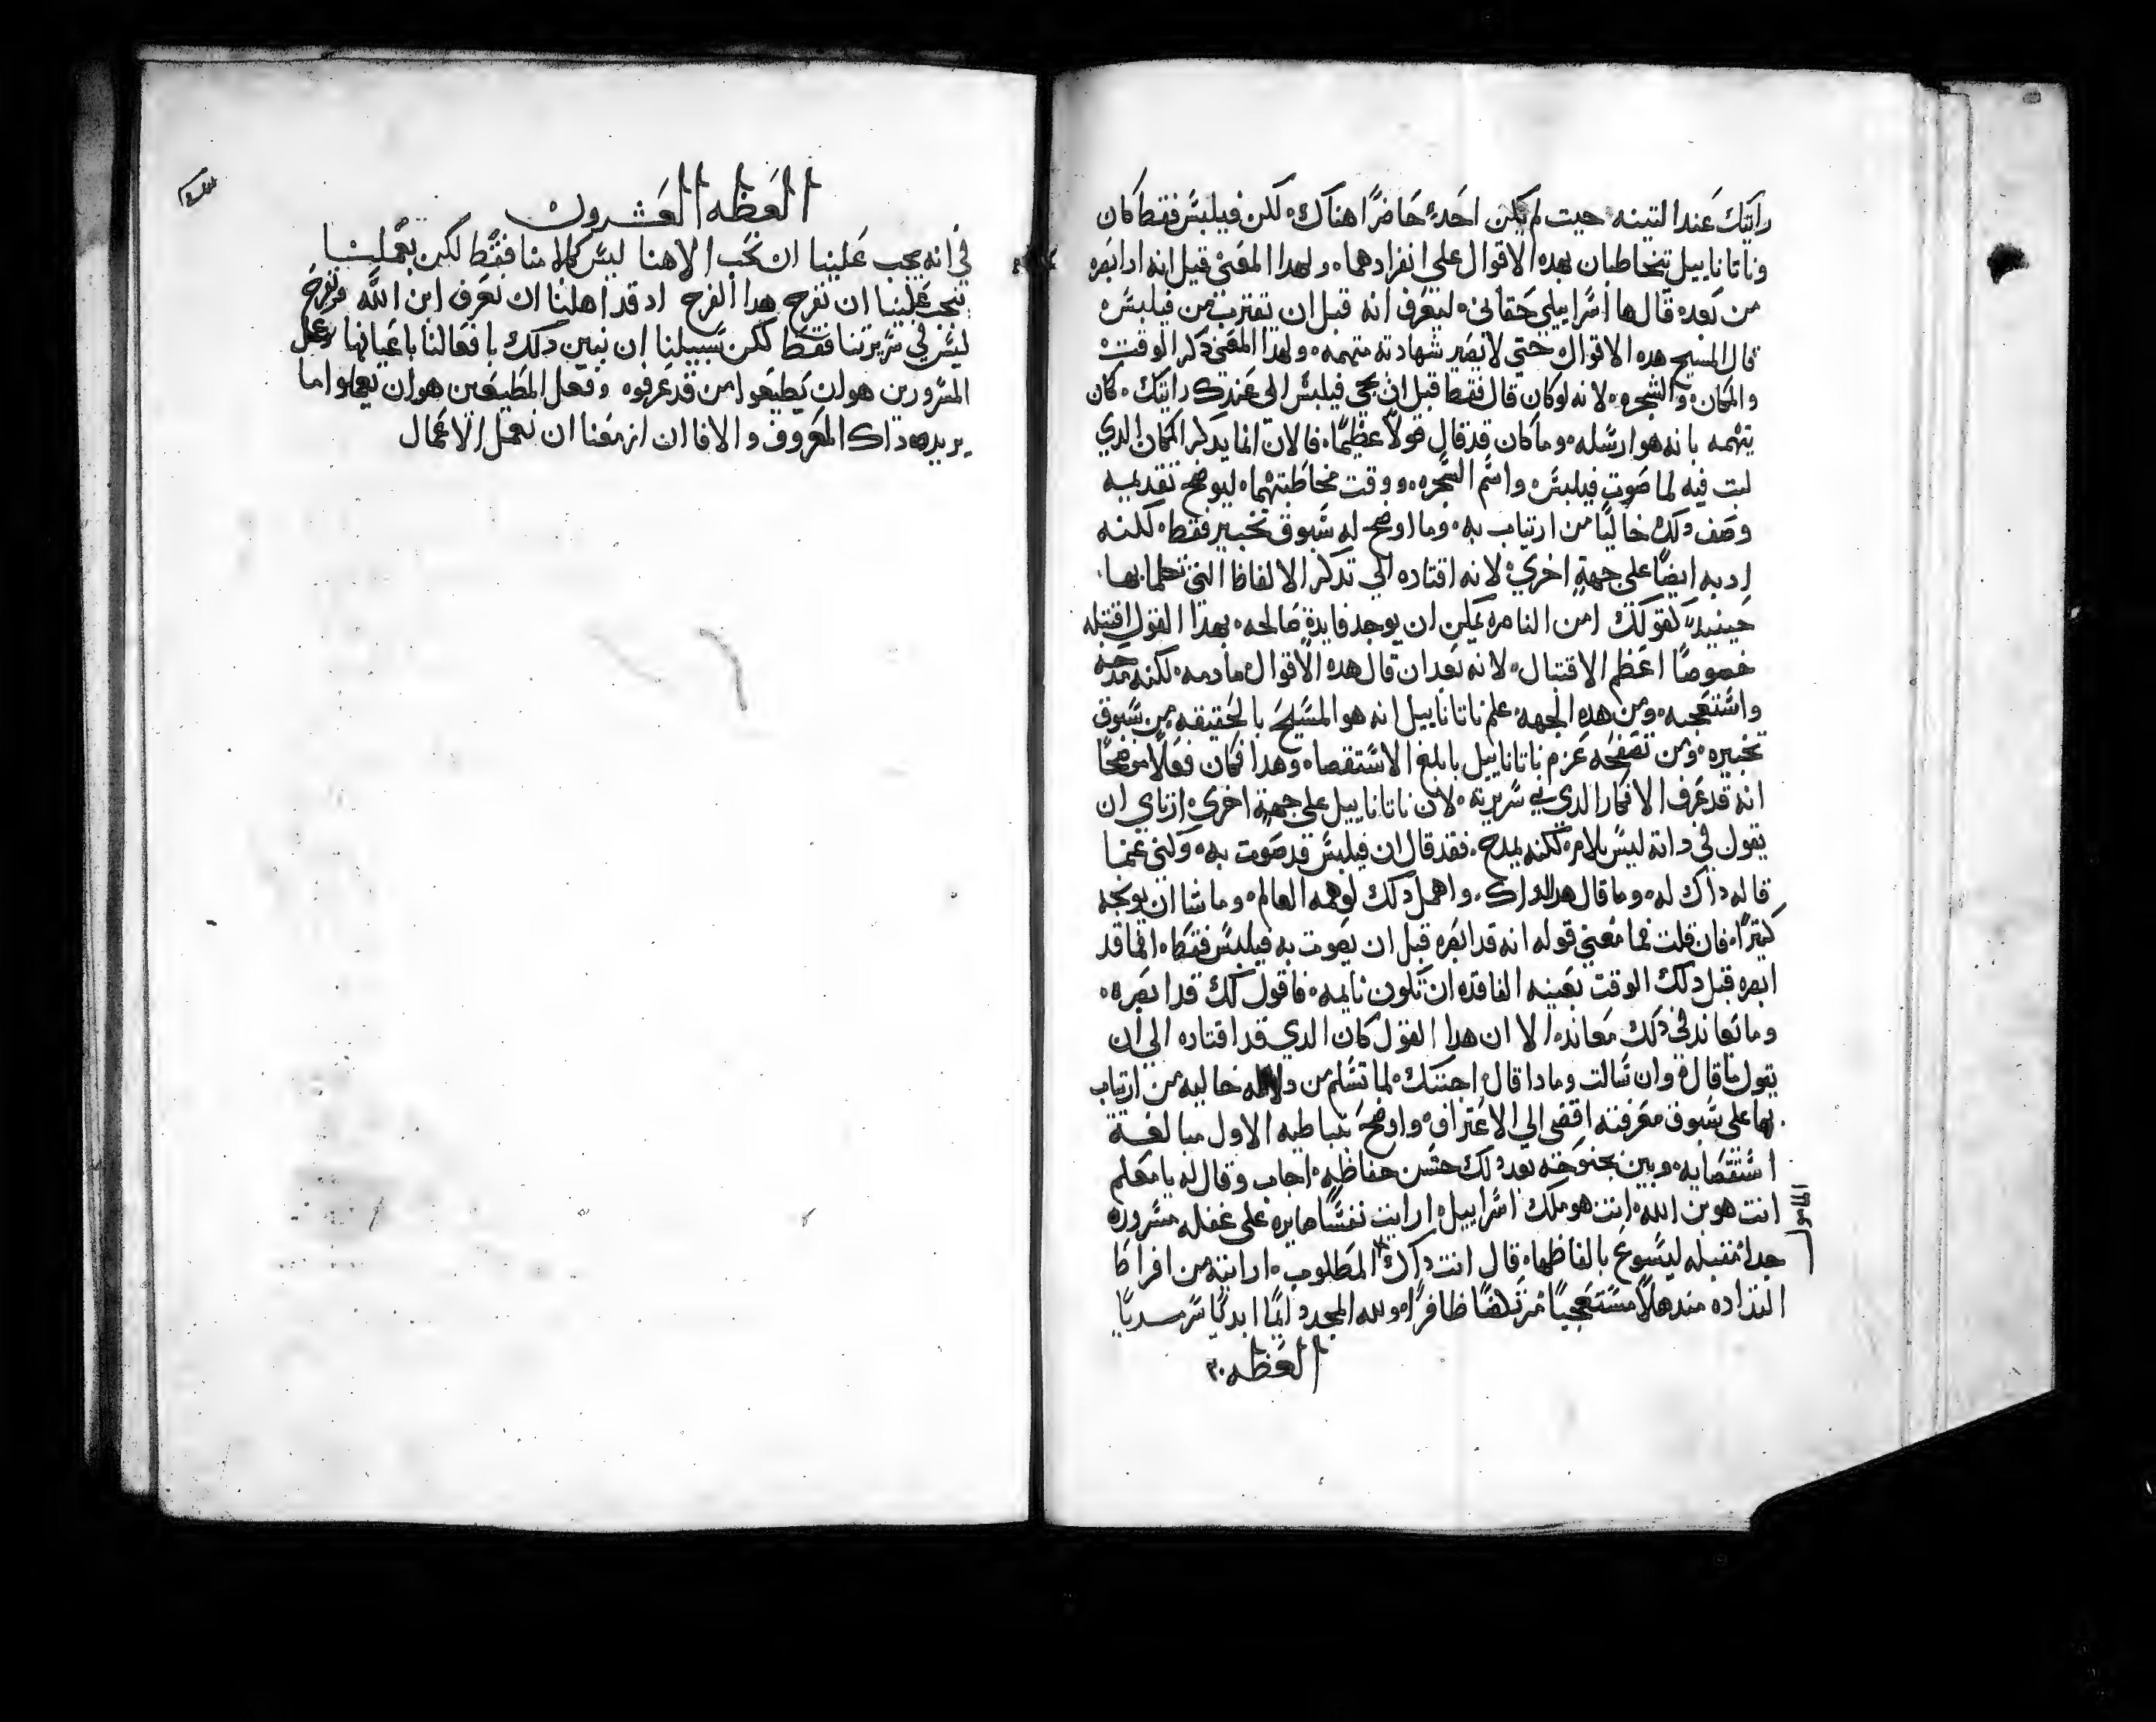 رايتك عند التينه حيت لم يكن احد حاضرًا هناك لكن فيلبس فقط كان
وناتاناييل تتخاطبان بهده الاقوال على انفرادهما ولهدا المعنى قيل انه اد ابصره
من بعده قال ها اسراييلي حقاني ليعرف انه قبل ان تقترب من فيلبس
قال المسيح هده الاقوال حتي لا تصير شهادته متهمه ولهدا المعنى دكر الوقت
والمكان والشجره لانه لو كان قال فقط قبل ان يجى فيلبس الى عندك رايتك كان
يتهمه بانه هو ارسله وما كان قد قال قولاً عظيمًا فالان انما يدكر المكان الدي
لبت فيه لما صوت فيلبس واسم الشجره ووقت مخاطبتهما ليوضح تقديمه
وصف دلك خاليًا من ارتياب به وما اوضح له سبوق تخبير فقط لكنه
ادبه ايضًا على جهةٍ اخري لانه اقتاده الي تدكر الالفاظ التي تكلما بها
حينيدٍ كقولك امن الناصره يمكن ان يوجد فايدة صالحه بهدا القول اقتبله
خصوصًا اعظم الاقتبال لانه بعد ان قال هده الاقوال ما دمه لكنه مدحه
واستعجبه ومن هده الجهه علم ناتاناييل انه هو المسيح بالحقيقه من سبوق
تخبيره ومن تصفحه عزم ناتاناييل بابلغ الاستقصا وهدا فكان فعلاً موضحًا
انه قد عرف الافكار الدي في سريرته لان ناتاناييل على جهة اخري ارتاي ان
يقول في داته ليس بلامه لكنه بمدح فقد قال ان فيلبس قد صوت به وكنى عنما
قاله داك له وما قال هدا لداك واهمل دلك لوهمه العالم وما شا ان يوبخه
كتيرًا فان قلت فما معني قوله انه قد ابصره قبل ان يصوت به فيلبس فقط افما قد
ابصره قبل دلك الوقت بعينه الفاقده ان تكون نايمه فاقول لك قد ابصره
وما تعاند في دلك معانده الا ان هدا القول كان الدي قد اقتاده الي ان
يقول ما قال وان سالت ومادا قال اجبتك لما تسلم من دلاله خاليه من ارتياب
بها على سبوق معرفته افضى الي الاعتراف واوضح بتباطيه الاول مبالغة
استقصايه وبين بجنوحه بعد دلك حسن حفاظه اجاب وقال له يا معلم
انت هو بن الله انت هو ملك اسراييل ارايت نفسًا صايره على غفله مسروره
جدا مقبله ليسوع بالفاظها قال انت داك المطلوب ارايته من افراط
التداده مندهلاً مستعجبًا مزتلفًا ظافرًا ولله المجد دايمًا ابديًا سرمديًا
العظه ٢٠
العظه العشرون
في انه يجب علينا ان نحب الاهنا ليس بكلامنا فقط لكن بعملنا
يجب علينا ان نفرح هدا الفرح اد قد اهلنا ان نعرف ابن الله فرنفرح
ليس في سريرتنا فقط لكن سبيلنا ان نبين دلك بافعالنا باعيانها وعمل
المسرورين هو ان يطيعوا من قد عرفوه وفعل المطيعين هو ان يعملوا ما
يريده داك المعروف والا فاان ازمعنا ان نعمل الاعمال